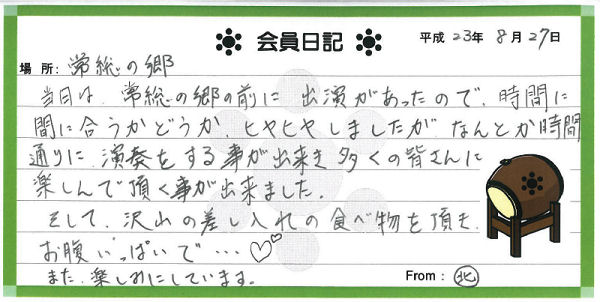 会員日記
平成23年 8月27日
場所: 常総の郷
当日は、常総の郷の前に 出演があったので、時間に
間に合うかどうか、ヒヤヒヤしましたが、なんとか時間
通りに、演奏をする事が出来き多くの皆さんに
楽しんで頂く事が出来ました。
そして、沢山の差し入れの食べ物を頂き、
お腹いっぱいで…♡♡
また、楽しみにしています。
From: ㊋